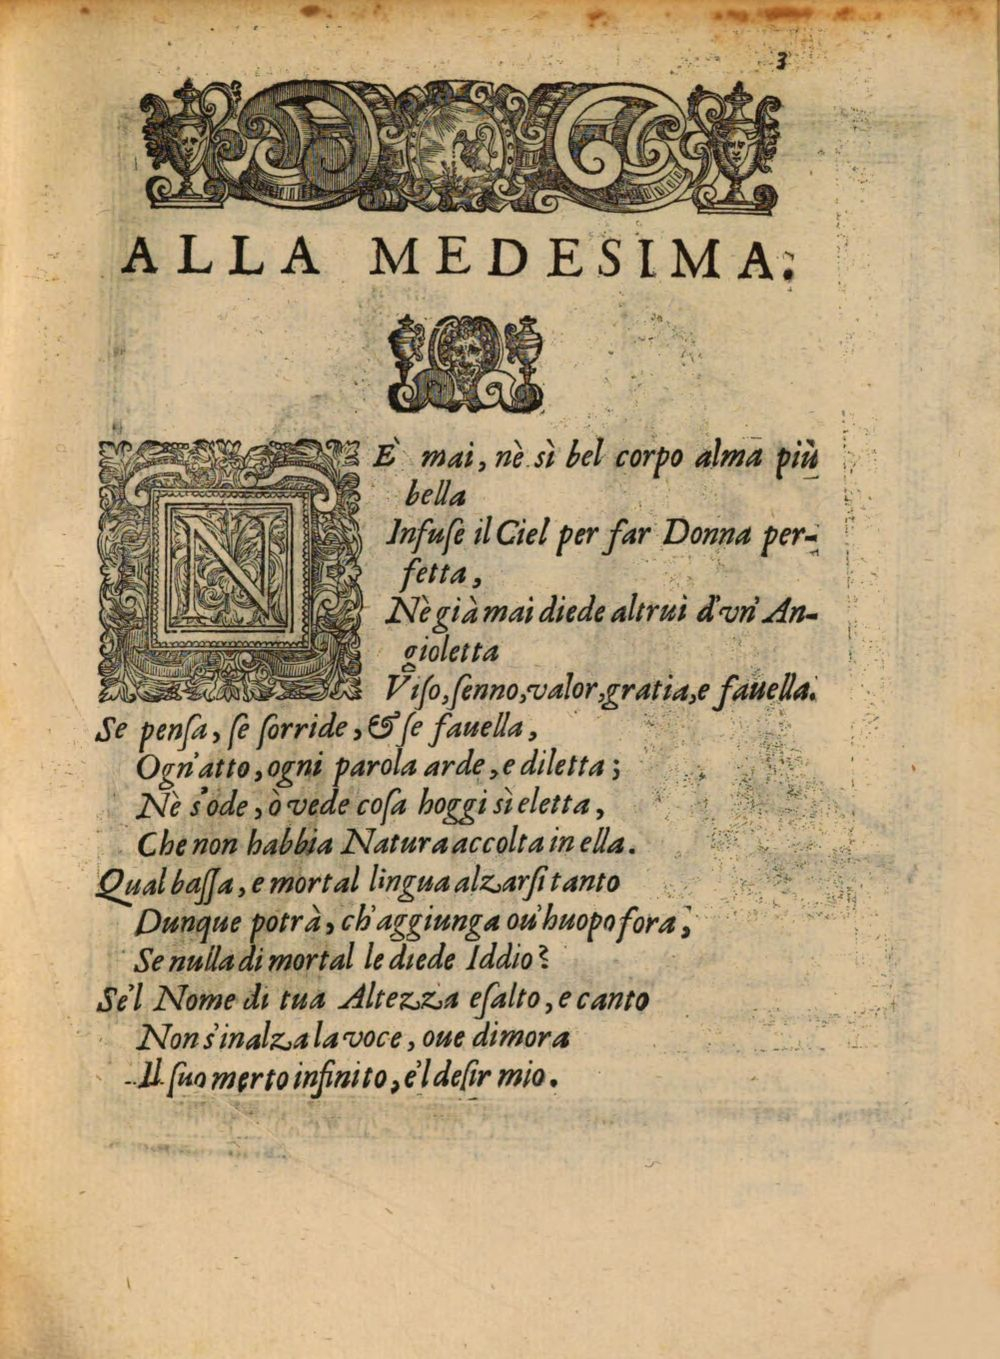 3
ALLA MEDESIMA.
NÈ mai, nè sì bel corpo alma più
bella
Infuſe il Ciel per far Donna per-
fetta,
Nè già mai diede altrui d'vn' An-
gioletta
Viſo, ſenno, valor, gratia, e fauella.
Se penſa, ſe ſorride, & ſe fauella,
Ogn'atto, ogni parola arde, e diletta;
Nè s'ode, ò vede coſa hoggi sì eletta,
Che non habbia Natura accolta in ella.
Qual baſſa, e mortal lingua alzarſi tanto
Dunque potrà, ch'aggiunga ou'huopo fora,
Se nulla di mortal le diede Iddio?
Se'l Nome di tua Altezza eſalto, e canto
Non s'inalza la voce, oue dimora
Il ſuo merto infinito, e'l deſir mio.